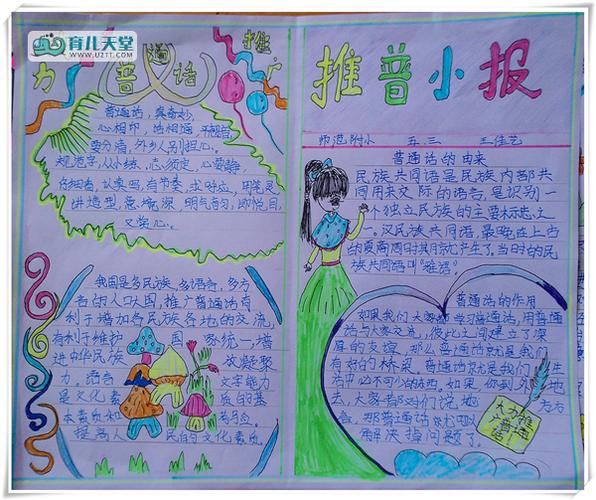 育儿天堂
WWW.U2TT.COM
大力推广
普通话
普通话，真奇妙，
心相印，话相通，
要分清，外乡人别担心。
规范字，从小练，心须定，心要静，
又赏心。
我国是多民族、多语言、多方
言的人口大国，推广普通话有
利于增加各民族各地的交流，
有利于维护国家统一，增
进中华民族的凝聚
力。语言文字能力
是文化素质的基
本素质和
提高人民的文化素质。
推普小报
师范附小 五.三 王佳艺
普通话的由来
民族共同语是民族内部共
同用来交际的语言，是识别一
个独立民族的主要标志之
一。汉民族共同语，最晚在上古
的夏商周时其期就产生了，当时的民
族共同语叫“雅语”。
普通话的作用
如果我们大家都学习普通话，用普通
话与大家交流，彼此之间建立了深
厚的友谊，那么普通话就是我们
友好的桥梁。普通话就是我们生
活中必不可少的东西。如果你到外地
去，大家都对你们说地方方
言，那普通话就可以
解决语问题了。
大力推
广普通
话！